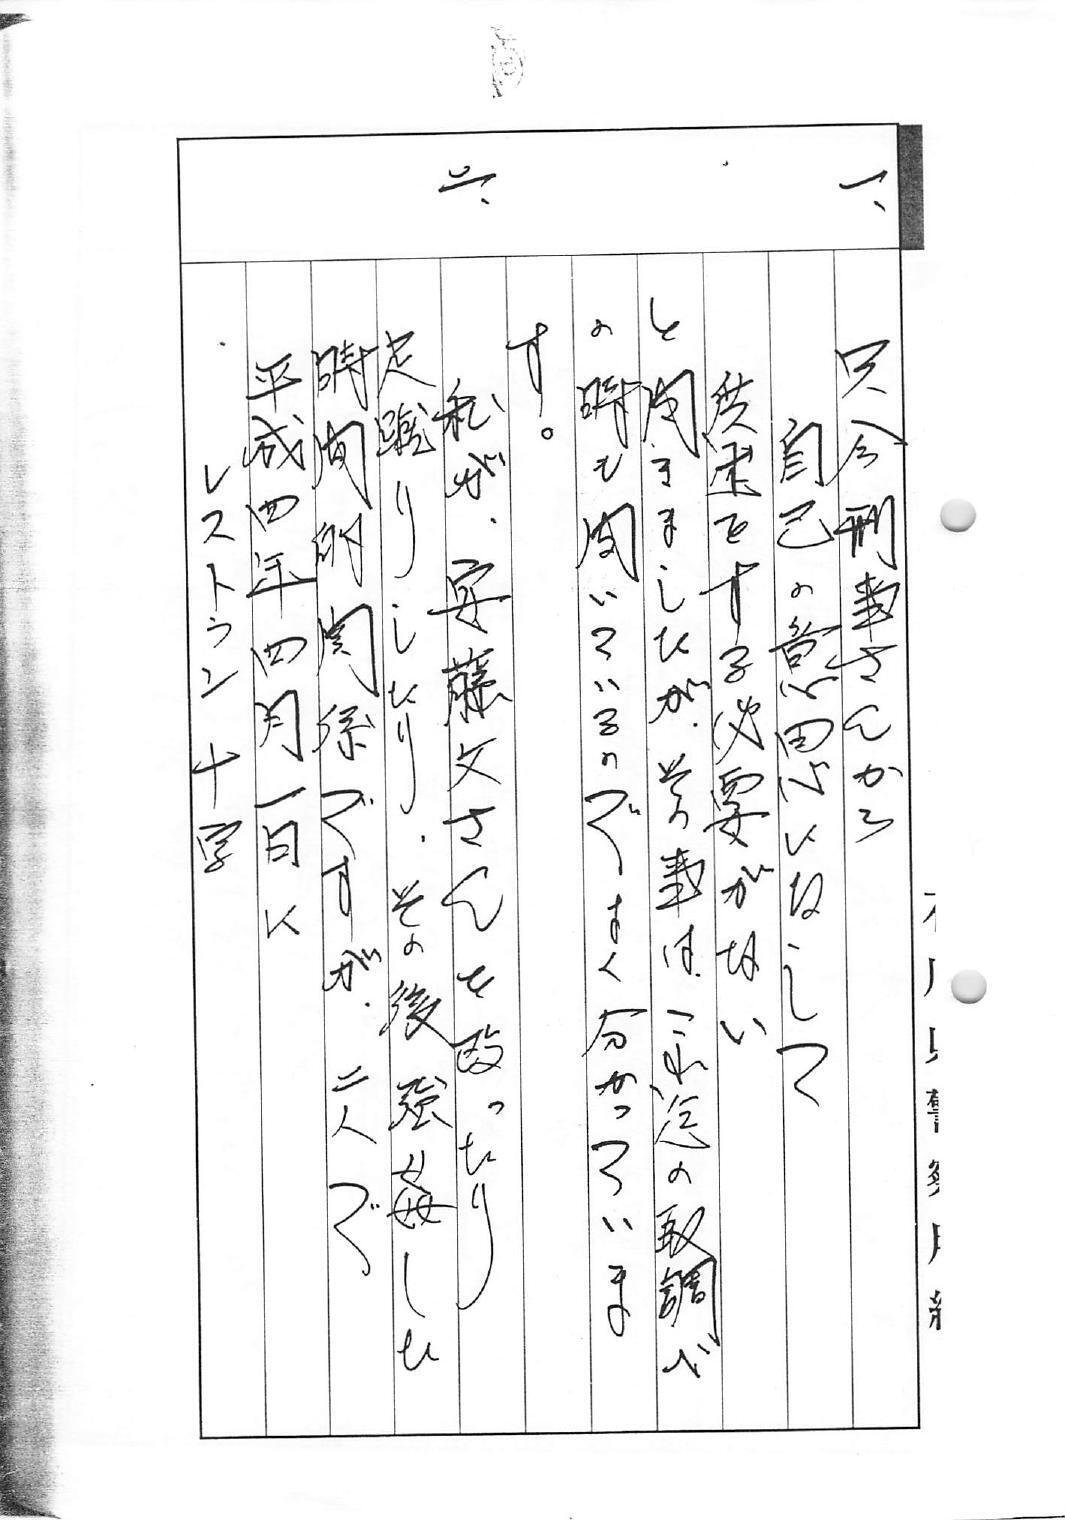 一、
只今刑事さんから
自己の意思に反して
供述をする必要がない
と聞きましたが、その事は、これ迄の取調べ
の時も聞いているので、よく分かっていま
す。
二、
私が、安藤文さんを殴ったり
足蹴りしたり、その後強姦した
時間的関係ですが、二人で
平成四年四月一日に
レストラン十字